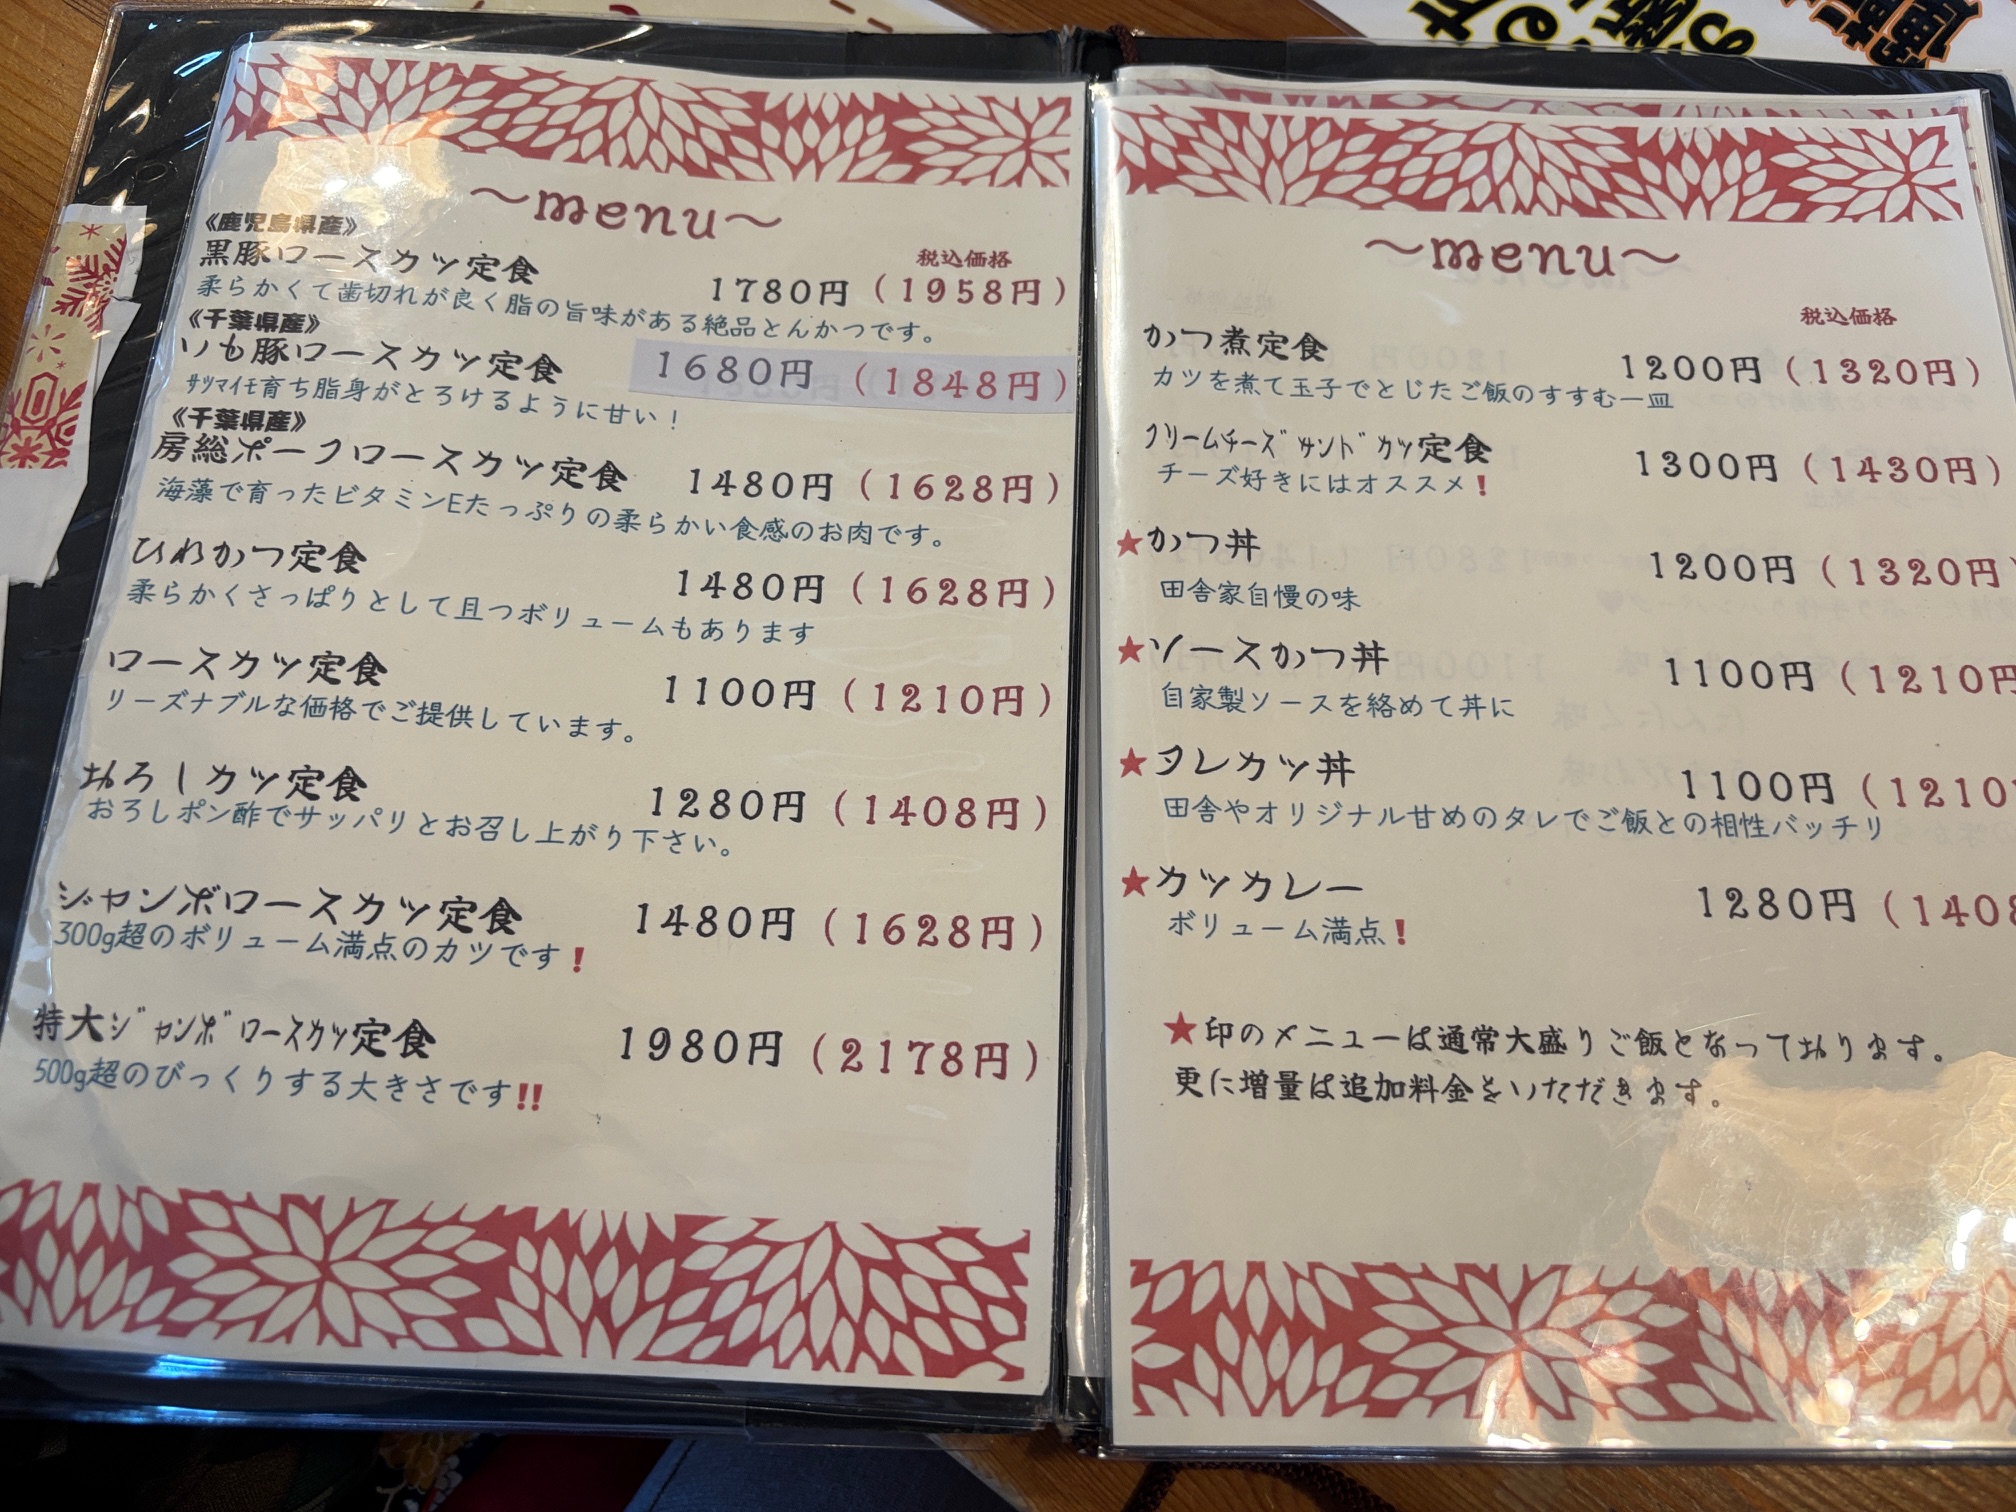 ～menu～
《鹿児島県産》
税込価格
黒豚ロースカツ定食 1780円（1958円）
柔らかくて歯切れが良く脂の旨味がある絶品とんかつです。
《千葉県産》
いも豚ロースカツ定食 1680円（1848円）
ｻﾂﾏｲﾓ育ち脂身がとろけるように甘い！
《千葉県産》
房総ポークロースカツ定食 1480円（1628円）
海藻で育ったビタミンEたっぷりの柔らかい食感のお肉です。
ひれかつ定食 1480円（1628円）
柔らかくさっぱりとして且つボリュームもあります
ロースカツ定食 1100円（1210円）
リーズナブルな価格でご提供しています。
おろしカツ定食 1280円（1408円）
おろしポン酢でサッパリとお召し上がり下さい。
ジャンボロースカツ定食 1480円（1628円）
300g超のボリューム満点のカツです❗
特大ｼﾞｬﾝﾎﾞﾛｰｽｶﾂ定食 1980円（2178円）
500g超のびっくりする大きさです‼
～menu～
税込価格
かつ煮定食 1200円（1320円）
カツを煮て玉子でとじたご飯のすすむ一皿
ｸﾘｰﾑﾁｰｽﾞｻﾝﾄﾞｶﾂ定食 1300円（1430円）
チーズ好きにはオススメ❗
★かつ丼 1200円（1320円）
田舎家自慢の味
★ソースかつ丼 1100円（1210円
自家製ソースを絡めて丼に
★タレカツ丼 1100円（1210
田舎やオリジナル甘めのタレでご飯との相性バッチリ
★カツカレー 1280円（1408
ボリューム満点❗
★印のメニューは通常大盛りご飯となっております。
更に増量は追加料金をいただきます。